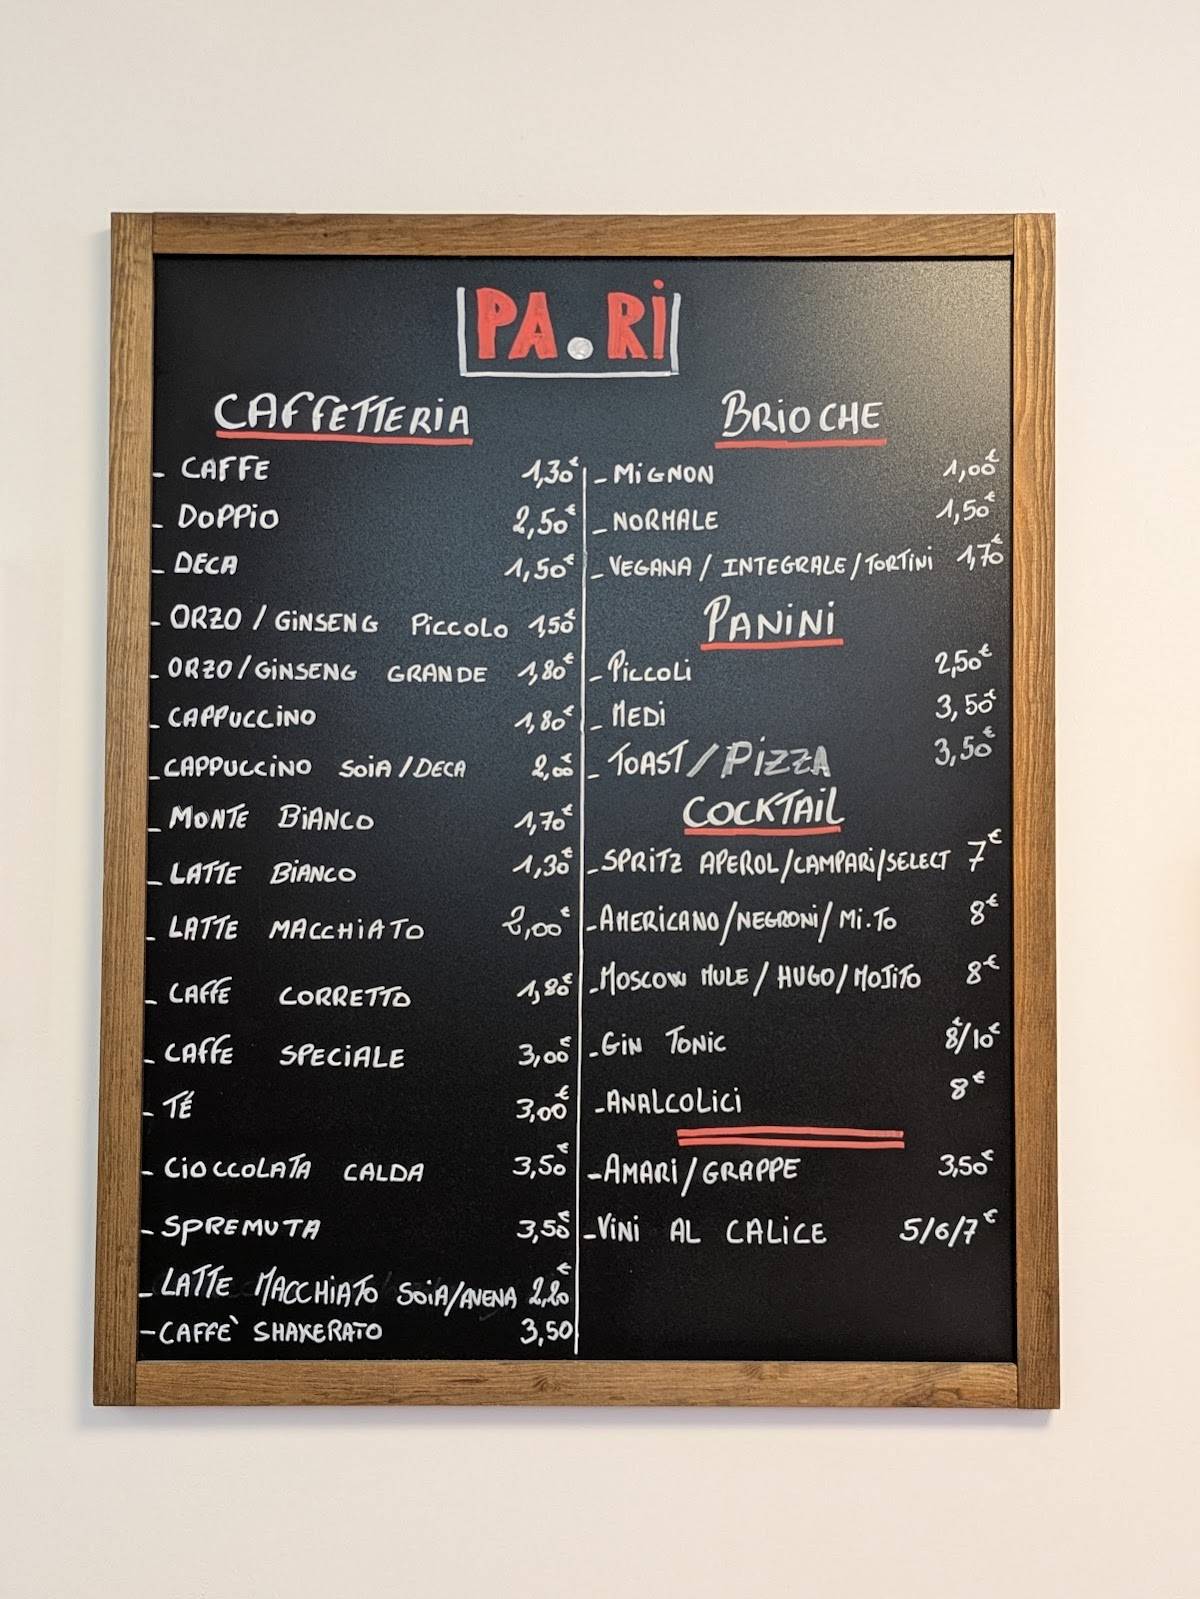 PA.Ri
CAFFETTERiA
- CAFFE 1,30€
- DOPPiO 2,50€
- DECA 1,50€
- ORZO / GiNSENG PiCCOLO 1,50€
- ORZO/GiNSENG GRANDE 1,80€
- CAPPUCCiNO 1,80€
- CAPPUCCiNO SOiA/DECA 2,00€
- MONTE BiANCO 1,70€
- LATTE BiANCO 1,30€
- LATTE MACCHiATO 2,00€
- CAFFE CORRETTO 1,80€
- CAFFE SPECiALE 3,00€
- TÉ 3,00€
- CiOCCOLATA CALDA 3,50€
- SPREMUTA 3,50€
- LATTE MACCHiATO SOiA/AVENA 2,20€
- CAFFE` SHAKERATO 3,50
BRiOCHE
- MiGNON 1,00€
- NORMALE 1,50€
- VEGANA / INTEGRALE/TORTiNi 1,70€
PANiNi
- PiCCOLi 2,50€
- MEDi 3,50€
- TOAST/PiZZA 3,50€
COCKTAiL
- SPRiTZ APEROL/CAMPARi/SELECT 7€
- AMERiCANO/NEGRONi/Mi.TO 8€
- MOSCOW MULE / HUGO/MOJiTO 8€
- GiN TONiC 8€/10€
- ANALCOLiCi 8€
- AMARi/GRAPPE 3,50€
- ViNi AL CALiCE 5/6/7€